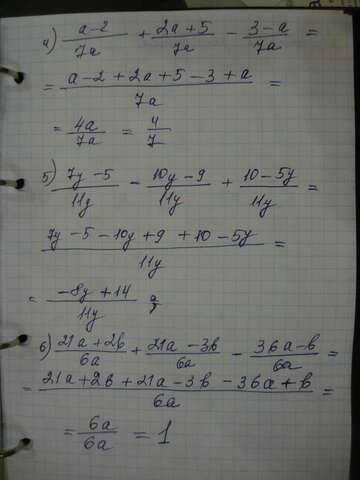 а) (a-2)/(7a) + (2a+5)/(7a) - (3-a)/(7a) =
= (a-2+2a+5-3+a)/(7a) =
= 4a/7a = 4/7
б) (7y-5)/(11y) - (10y-9)/(11y) + (10-5y)/(11y) =
(7y-5-10y+9+10-5y)/(11y) =
= (-8y+14)/(11y) ;
в) (21a+2b)/(6a) + (21a-3b)/(6a) - (36a-b)/(6a) =
= (21a+2b+21a-3b-36a+b)/(6a) =
= 6a/6a = 1